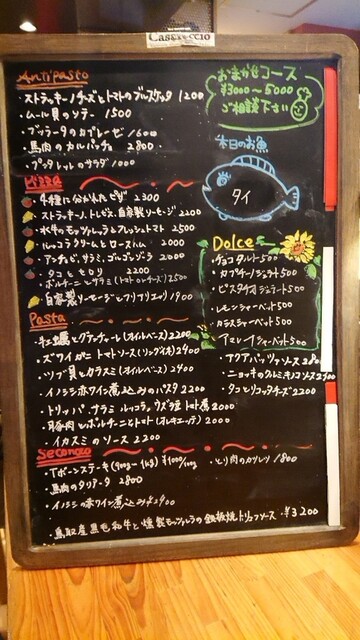 Casareccio
Antipasto
・ストラッキーノチーズとトマトのブルスケッタ 1200
・ムール貝のソテー 1500
・ブッラータのカプレーゼ 1600
・馬肉のカルパッチョ 2800
のサラダ 1000
おまかせコース
¥3000～5000
ご相談下さい
本日のお魚
タイ
Pizza
4種に分かれたピザ 2300
ストラッキーノ、トレビス、自家製ソーセージ 2200
水牛のモッツァレラとフレッシュトマト 2500
ルッコラクリームとロースハム 2000
アンチョビ、サラミ、ゴルゴンゾーラ 2000
タコとセロリ 2200
ポルチーニとサラミ(トマトのチーズ) 2500
自家製ソーセージとフリアリエッリ 1900
Dolce
・チョコタルト 500
・カプチーノジェラート 500
・ピスタチオジェラート 500
・レモンシャーベット 500
・カシスシャーベット 500
シャーベット 500
Pasta
(オイルベース) 2200
・ズワイガニトマトソース(リングイネ) 2400
・ツブ貝とカラスミ(オイルベース) 2400
・イノシシ赤ワイン煮込みのパスタ 2200
・トリッパ サラミ ルッコラ、ウズラ豆 トマト煮 2000
・豚肉とポルチーニとトマト(オレキエッテ) 2000
・イカスミのソース 2200
・アクアパッツァソース 2800
・ニョッキのクルミキノコソース 2400
・タコとリコッタチーズ 2200
Secondo
・Tボーンステーキ(900g～1kg) ¥1100/100g
・とり肉のカツレツ 1800
・馬肉のタリアータ 2800
・イノシシの赤ワイン煮込み 2400
・鳥取産黒毛和牛と燻製モッツァレラの鉄板焼トリュフソース ¥3200